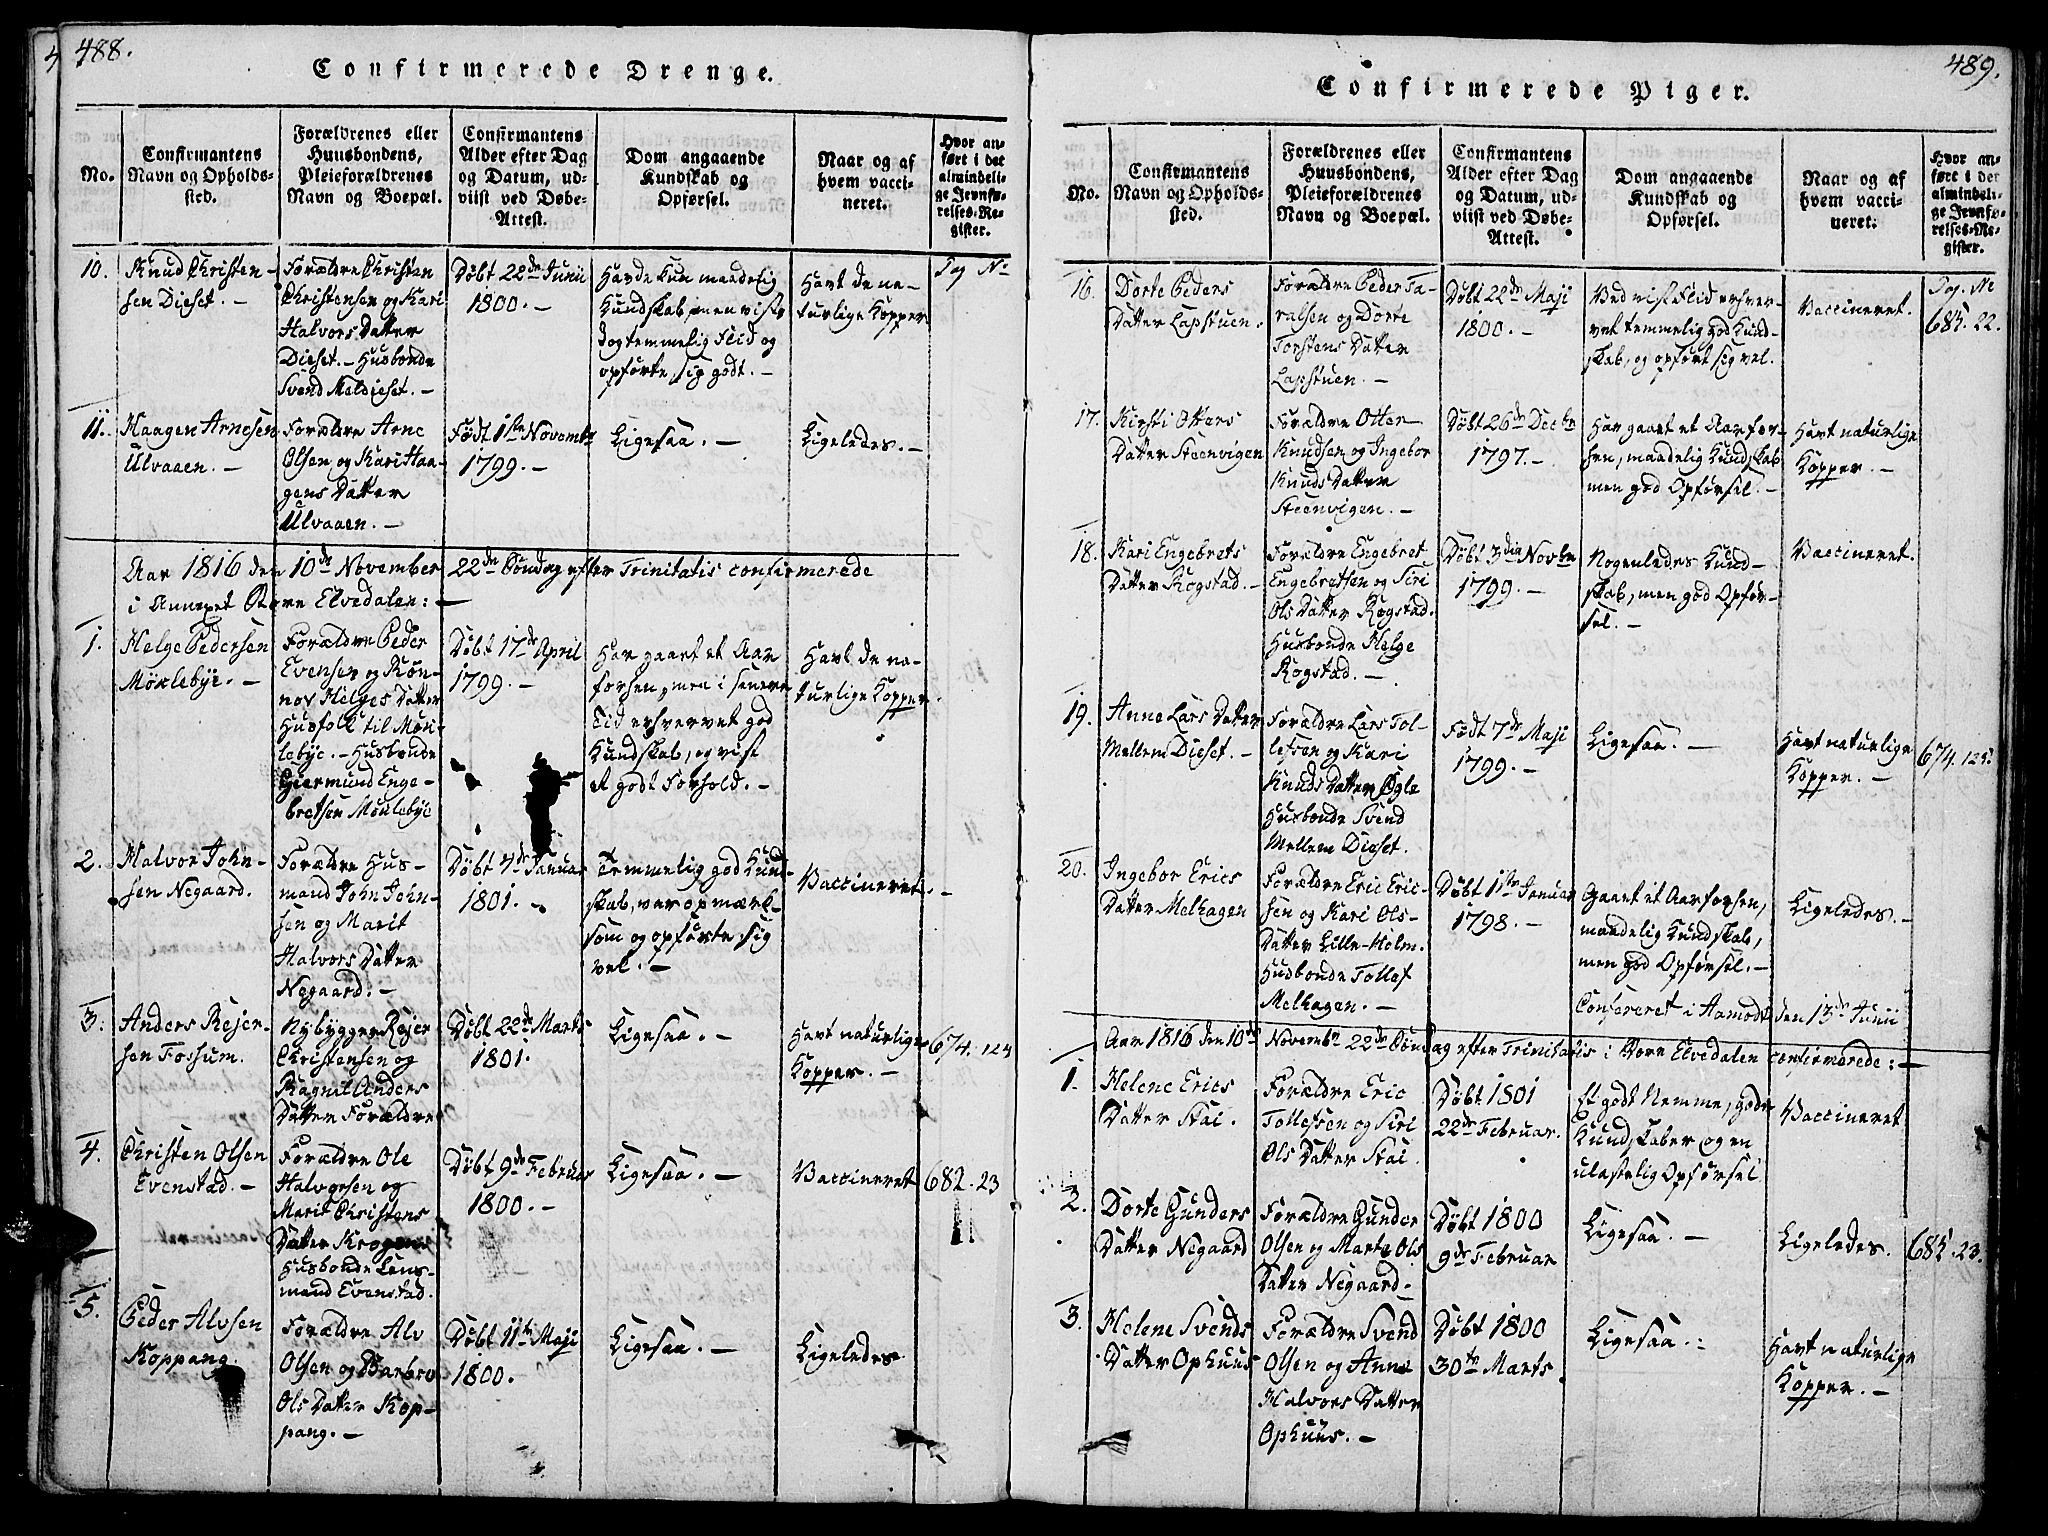 488.
Confirmerede Drenge.
No.
Confirmantens
Navn og Opholds-
sted.
Forældrenes eller
Huusbondens,
Pleieforældrenes
Navn og Boepæl.
Confirmantens
Alder efter Dag
og Datum, ud-
viist ved Døbe-
Attest.
Dom angaaende
Kundskab og
Opførsel.
Naar og af
hvem vacci-
neret.
Hvor an-
ført i det
almindeli-
ge Jevnfø-
relses-Re-
gister.
Pag No
10.
Knud Christen-
sen Dieset. -
Forældre Christen
Christensen og Kari
Halvors Datter
Dieset. - Husbonde
Svend Meldieset. -
Døbt 22de Junii
1800. -
Havde kun maadelig
Kundskab, men viste
dog temmelig Flid og
opførte sig godt. -
Havt de na-
turlige Kopper
11.
Haagen Arnesen
Ulvaaen. -
Forældre Arne
Olsen og Kari Haa-
gens Datter
Ulvaaen. -
Født 1ste Novembr
1799. -
Ligesaa. -
Ligeledes. -
Aar 1816 den 10de November 22de Søndag efter Trinitatis confirmerede
i Annexet Store Elvedalen: -
1.
Helge Pedersen
Møklebye. -
Forældre Peder
Evensen og Røn-
nov Helges Datter
Husfolk til Møk-
lebye. - Husbonde
Giermund Enge-
bretsen Møklebye
Døbt 17de April
1799. -
Har gaaet et Aar
forsen, men i senere
Tid erhvervet god
Kundskab, og vist
et godt Forhold. -
Havt de na-
turlige Kopper.
2.
Halvor John-
sen Negaard.
Forældre Hus-
mand John John-
sen og Marit
Halvors Datter
Negaard. -
Døbt 4de Januar
1801. -
Temmelig god Kund-
skab, var opmærk-
som og opførte sig
vel. -
Vaccineret. -
3.
Anders Rejer-
sen Fossum.
Nybygger Rejer
Christensen og
Ragnil Anders
Datter Forældre
Døbt 22de Marts
1801.
Ligesaa. -
Havt naturlige
Kopper. -
674. 124
4.
Christen Olsen
Evenstad. -
Forældre Ole
Halvorsen og
Marit Christens
Datter Krogen
Husbonde Lens-
mand Evenstad.
Døbt 9de Februar
1800. -
Ligesaa. -
Vaccineret
682. 23
5.
Peder Alvsen
Koppang
Forældre Alv
Olsen og Barbro
Ols Datter Kop-
pang. -
Døbt 11te Maji
1800.
Ligesaa. -
Ligeledes
489.
Confirmerede Piger.
No.
Confirmantens
Navn og Opholds-
sted.
Forældrenes eller
Huusbondens,
Pleieforældrenes
Navn og Boepæl.
Confirmantens
Alder efter Dag
og Datum, ud-
viist ved Døbe-
Attest.
Dom angaaende
Kundskab og
Opførsel.
Naar og af
hvem vacci-
neret.
Hvor an-
ført i det
almindeli-
ge Jevnfø-
relses-Re-
gister.
Pag. No
16.
Dorte Peders
Datter Lapstuen.
Forældre Peder
og Dorte
Torstens Datter
Lapstuen. -
Døbt 22de Maji
1800. -
Ved vist Flid erhver-
vet temmelig god Kund-
skab, og opført sig vel.
Vaccineret.
685. 22.
17.
Kirsti Otters
Datter Steenvigen
Forældre Otter
Knudsen og Ingebor
Knuds Datter
Steenvigen. -
Døbt 26de Decbr
1797. -
Har gaaet et Aar for-
sen, maadelig Kundskab
men god Opførsel. -
Havt naturlige
Kopper. -
18.
Kari Engebrets
Datter Rogstad. -
Forældre Engebret
Engebretsen og Siri
Ols Datter Rogstad.
Husbonde Helge
Rogstad. -
Døbt 3die Novbr
1799. -
Nogenledes Kund-
skab, men god Opfør-
sel. -
Vaccineret.
19.
Anne Lars Datter
Mellem Dieset. -
Forældre Lars Tol-
lefsen og Kari
Knuds Datter Øgle
Husbonde Svend
Mellem Dieset.
Født 7de Maji
1799. -
Ligesaa. -
Havt naturlige
Kopper. -
674. 125.
20.
Ingebor Erics
Datter Melhagen
Forældre Eric Eric-
sen og Kari Ols-
Datter Lille-Holm.
Husbonde Tollef
Melhagen. -
Døbt 1ste Januar
1798. -
Gaaet et Aar forsen,
maadelig Kundskab,
men god Opførsel. -
Ligeledes. -
Confereret i Aamodt den 13de Junii
Aar 1816 den 10de Novembr 22de Søndag efter Trinitatis i Store Elvedalen confirmerede: -
1.
Helene Erics
Datter Stai.
Forældre Eric
Tollefsen og Siri
Ols Datter Stai
Døbt 1801
22de Februar.
Et godt Nemme, gode
Kundskaber og en
ulastelig Opførsel
Vaccineret
2.
Dorte Gunders
Datter Negaard
Forældre Gunder
Olsen og Marte Ols
Datter Negaard. -
Døbt 1800
9de Februar
Ligesaa. -
Ligeledes.
685. 23.
3.
Helene Svends
Datter Ophuus
Forældre Svend
Olsen og Anne
Halvors Datter
Ophuus. -
Døbt 1800
30te Marts
Ligesaa. -
Havt naturlige
Kopper. -